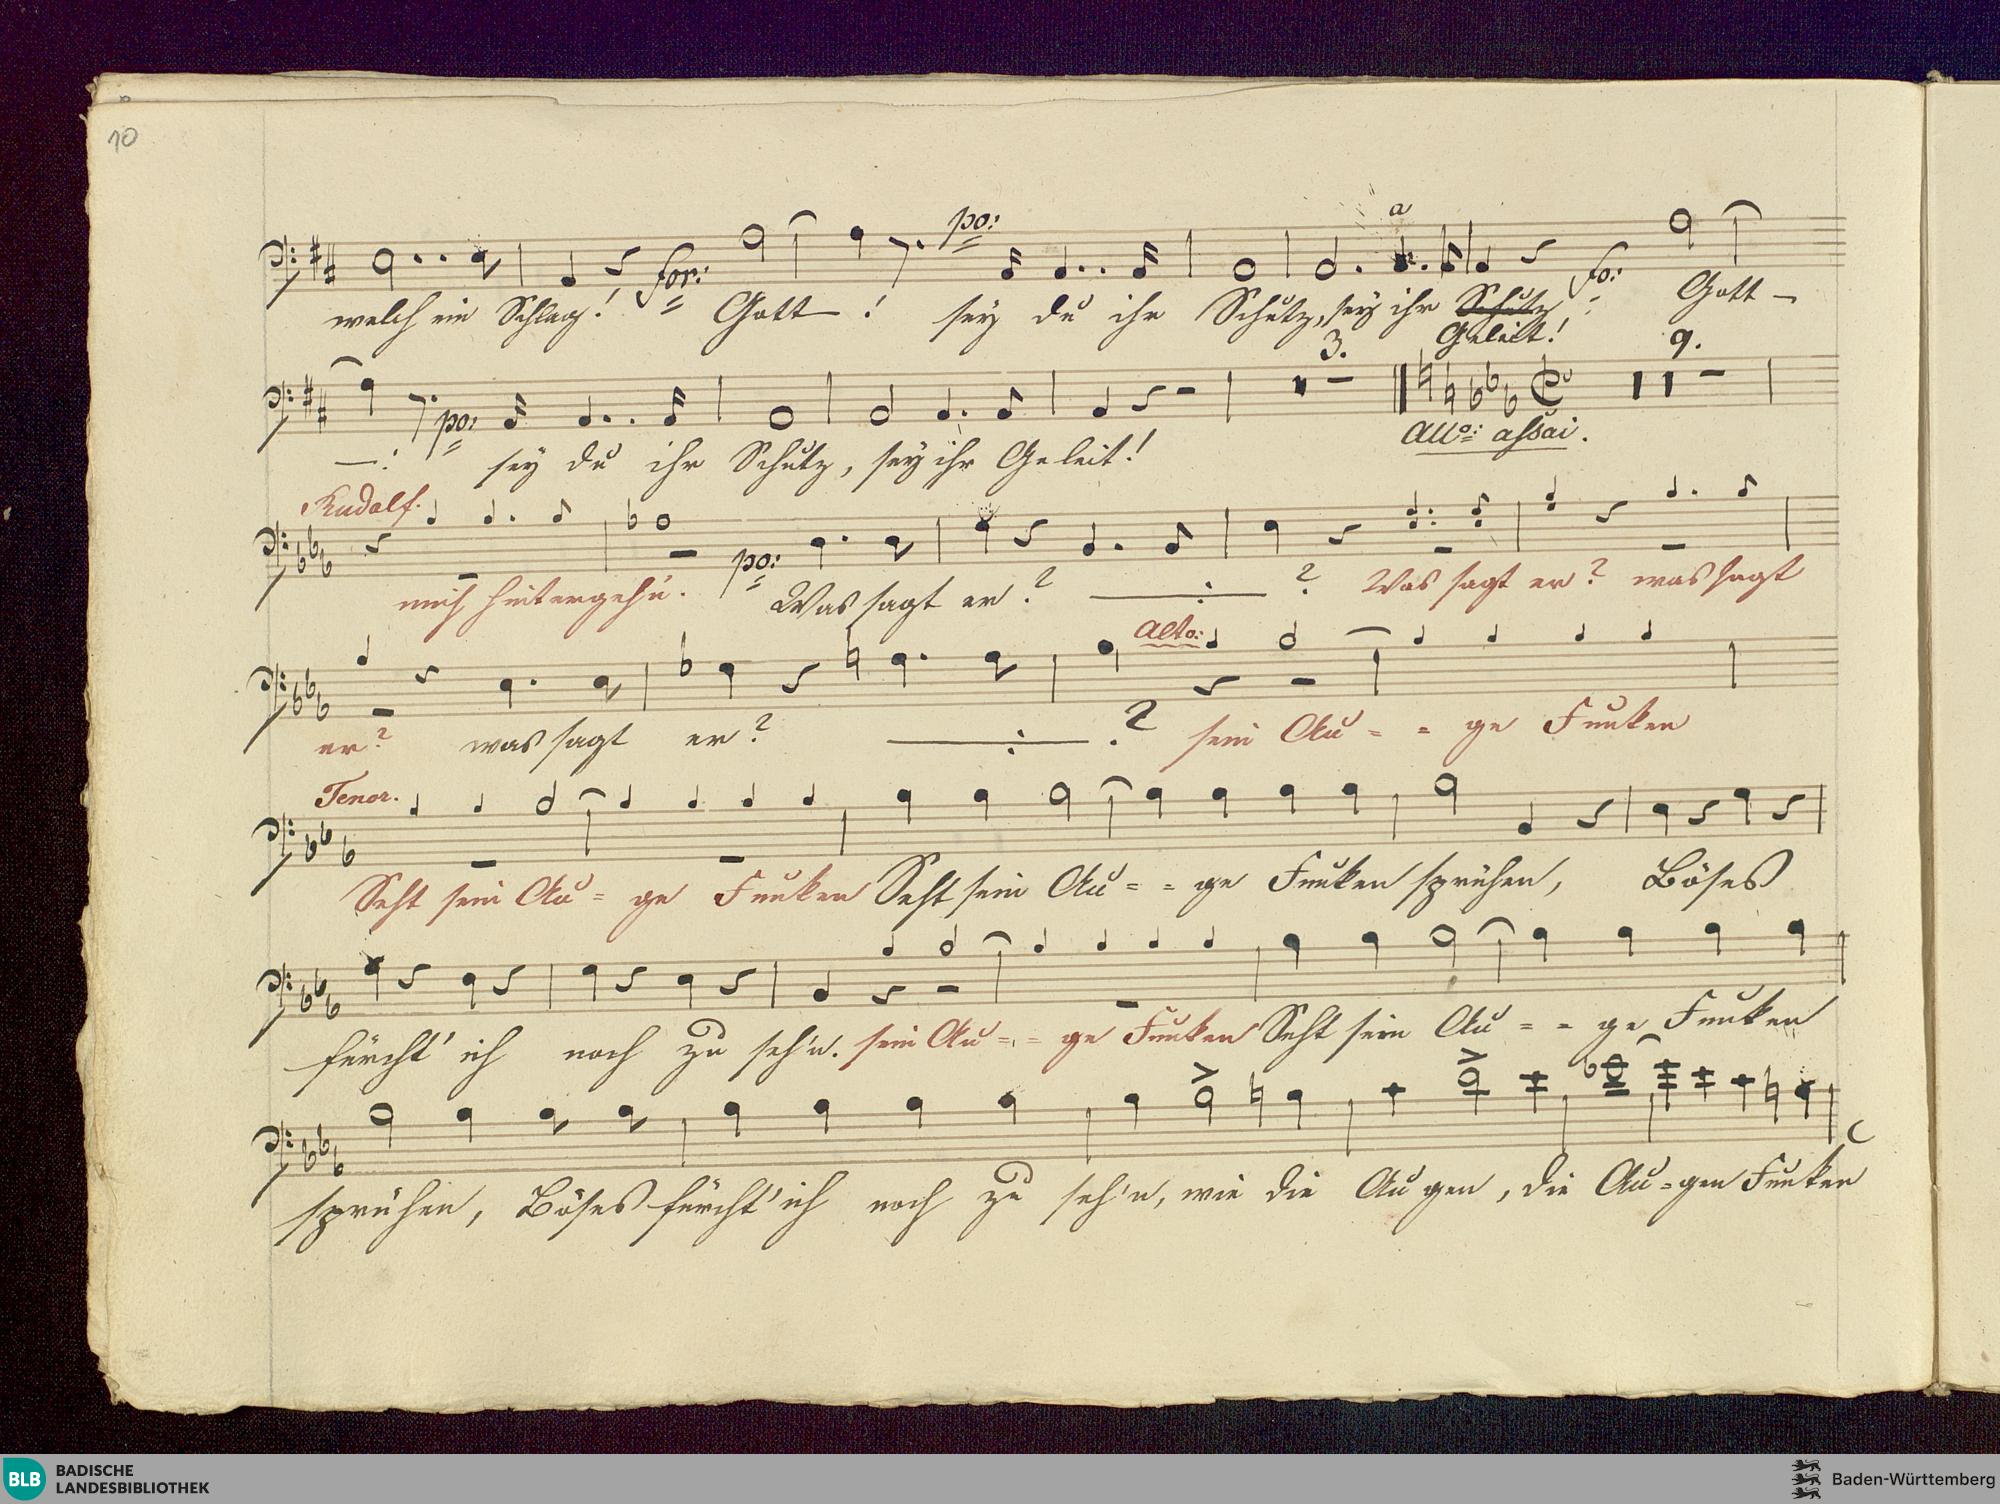 10
po: a
welch ein Schlag! for: Gott ! sey du ihr Schutz, sey ihr Schutz fo: Gott
Geleit!
3. 9.
po: All.o: assai.
! sey du ihr Schutz, sey ihr Geleit!
Rudolf.
mich hintergeh'n. po: Was sagt er? ? Was sagt er? was sagt
Alto:
er? was sagt er? ? sein Au = = ge Funken
Tenor.
Seht sein Au = ge Funken Seht sein Au = = ge Funken sprühen, Böses
fürcht' ich noch zu seh'n. sein Au = = ge Funken Seht sein Au = = ge Funken
sprühen, Böses fürcht' ich noch zu seh'n, wie die Augen, die Au=gen Funken
BLB BADISCHE
LANDESBIBLIOTHEK
Baden-Württemberg